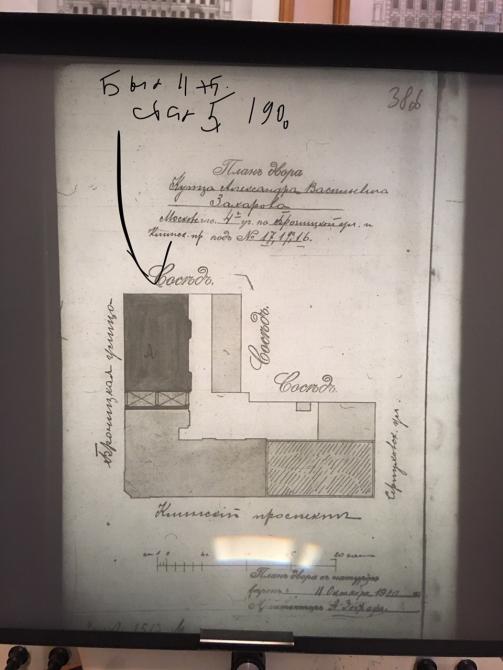 Был 4 эт.
стал 5 190
38
Планъ двора
Купца Александра Васильевича
Захарова
Московск. 4го уч. по Бронницкой ул. и
Клинск. пр. подъ № 17,
Сосѣдъ.
Сосѣдъ.
Сосѣдъ.
А
Бронницкая улица
Серпуховск. ул.
Клинскій проспектъ
Планъ двора съ натурою
вѣренъ: 11 Октября
Архитекторъ